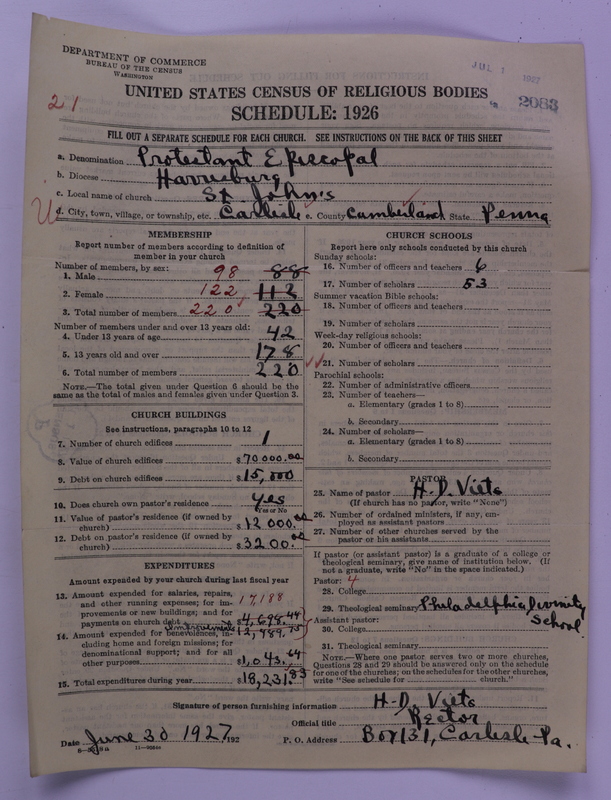 DEPARTMENT OF COMMERCE
BUREAU OF THE CENSUS
WASHINGTON
JUL 1 1927
UNITED STATES CENSUS OF RELIGIOUS BODIES
21
2083
SCHEDULE: 1926
FILL OUT A SEPARATE SCHEDULE FOR EACH CHURCH. SEE INSTRUCTIONS ON THE BACK OF THIS SHEET
a. Denomination Protestant Episcopal
b. Diocese Harrisburg
c. Local name of church St. John's
U d. City, town, village, or township, etc. Carlisle e. County Cumberland State Penna
MEMBERSHIP
Report number of members according to definition of member in your church
Number of members, by sex:
1. Male 98 88
2. Female 122 112
3. Total number of members 220 220
Number of members under and over 13 years old:
4. Under 13 years of age 42
5. 13 years old and over 178
6. Total number of members 220
NOTE.—The total given under Question 6 should be the
same as the total of males and females given under Question 3.
CHURCH BUILDINGS
See instructions, paragraphs 10 to 12
7. Number of church edifices 1
8. Value of church edifices $70000.00
9. Debt on church edifices $15,000
10. Does church own pastor's residence yes
Yes or No
11. Value of pastor's residence (if owned by
church) $12000.00
12. Debt on pastor's residence (if owned by
church) $3200.00
EXPENDITURES
Amount expended by your church during last fiscal year
13. Amount expended for salaries, repairs,
and other running expenses; for im-
provements or new buildings; and for
payments on church debt 17,188 $4,698.44
Improvements 12,489.75
14. Amount expended for benevolences, in-
cluding home and foreign missions; for
denominational support; and for all
other purposes $1,043.64
15. Total expenditures during year $18,231.83
CHURCH SCHOOLS
Report here only schools conducted by this church
Sunday schools:
16. Number of officers and teachers 6
17. Number of scholars 53
Summer vacation Bible schools:
18. Number of officers and teachers
19. Number of scholars
Week-day religious schools:
20. Number of officers and teachers
21. Number of scholars
Parochial schools:
22. Number of administrative officers
23. Number of teachers—
a. Elementary (grades 1 to 8)
b. Secondary
24. Number of scholars—
a. Elementary (grades 1 to 8)
b. Secondary
PASTOR
25. Name of pastor H. D. Viets
(If church has no pastor, write "None")
26. Number of ordained ministers, if any, em-
ployed as assistant pastors
27. Number of other churches served by the
pastor or his assistants
If pastor (or assistant pastor) is a graduate of a college or
theological seminary, give name of institution below. (If
not a graduate, write "No" in the space indicated.)
Pastor: 4
28. College
29. Theological seminary Philadelphia Divinity School
Assistant pastor:
30. College
31. Theological seminary
NOTE.—Where one pastor serves two or more churches,
Questions 28 and 29 should be answered only on the schedule
for one of the churches; on the schedules for the other churches,
write "See schedule for church."
Signature of person furnishing information H. D. Viets
Official title Rector
Date June 30 1927 192
P. O. Address Box 131, Carlisle Pa.